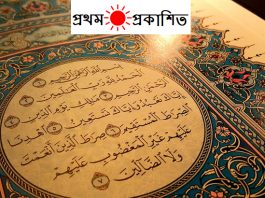 প্রথম প্রকাশিত
بسم الله الرحمن الرحيم
الحمد لله رب العلمين
الرحمن الرحيم ملك يوم الدين
إياك نعبد وإياك نستعين اهدنا
الصرط المستقيم صرط الذين أنعمت
عليهم غير المغضوب عليهم
ولا الضالين ٧